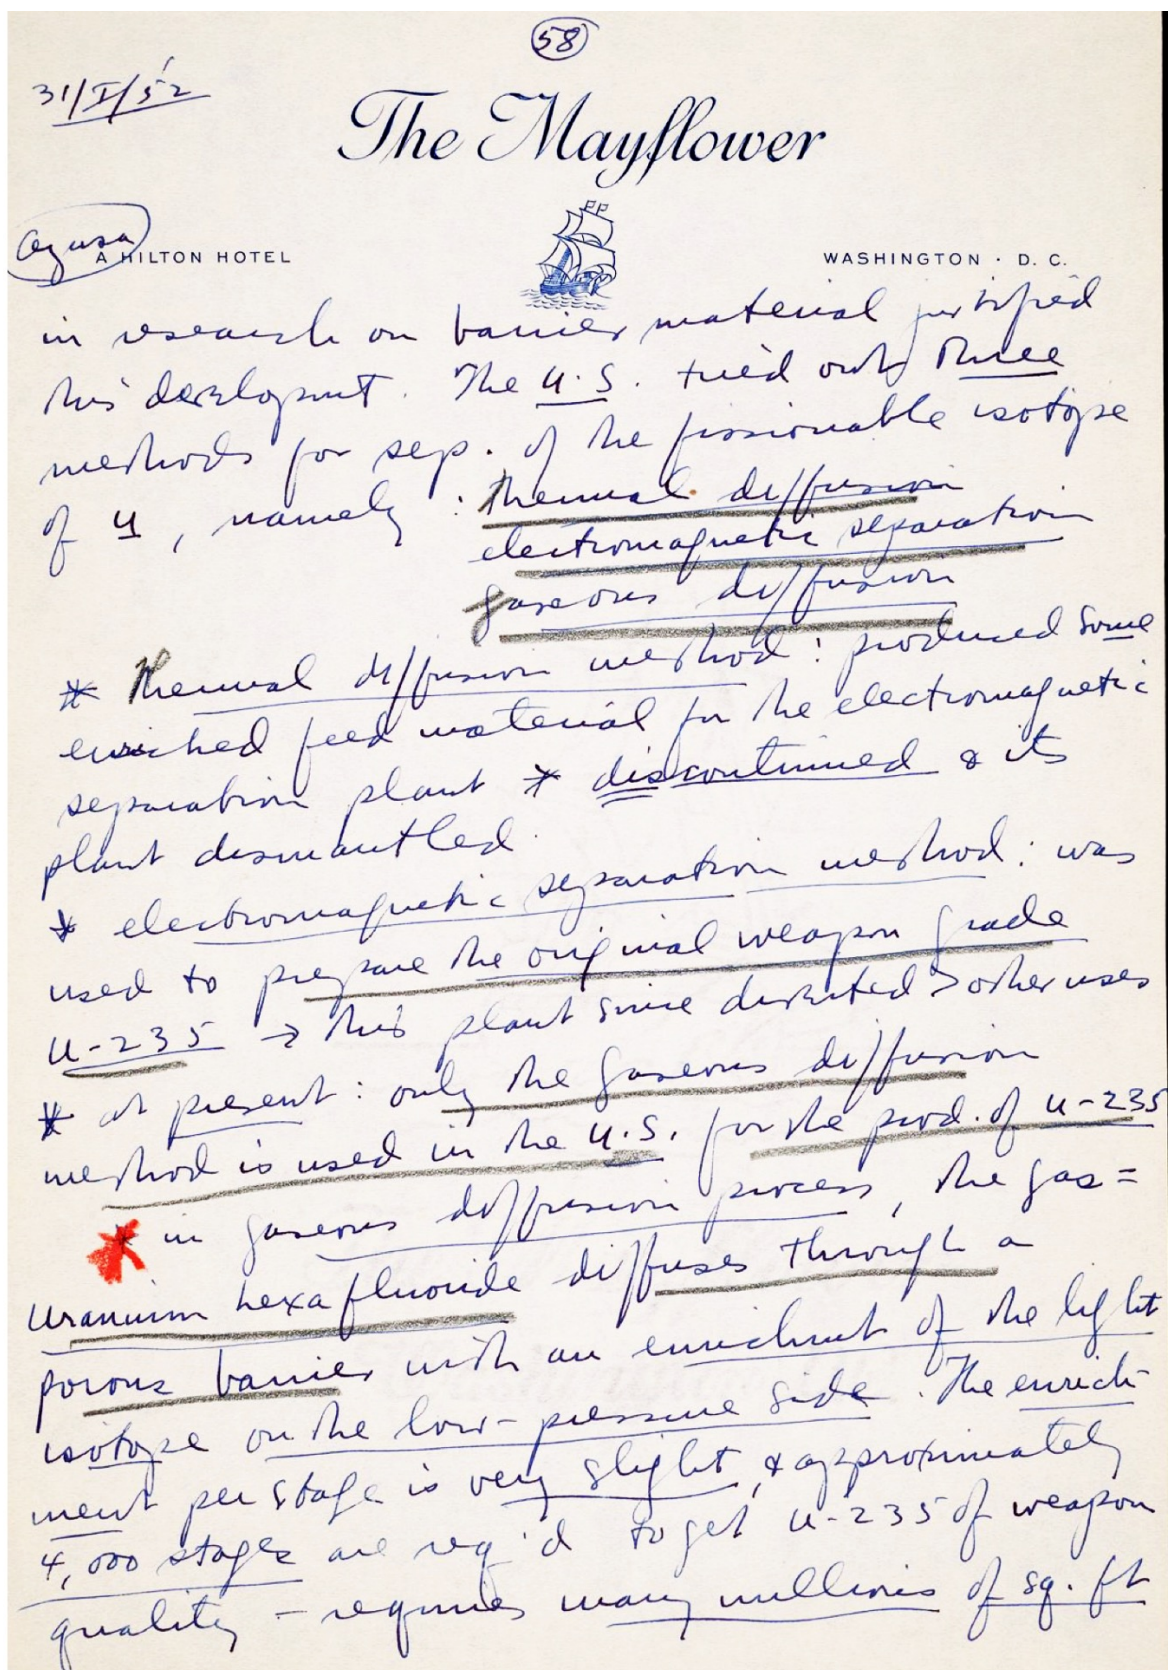 58
31/I/52
The Mayflower
Azusa
A HILTON HOTEL
WASHINGTON · D. C.
in research on barrier material justified
this development. The U.S. tried out three
methods for sep. of the fissionable isotope
of U, namely : thermal diffusion
electromagnetic separation
gaseous diffusion
* Thermal diffusion method : produced some
enriched feed material for the electromagnetic
separation plant * discontinued & its
plant dismantled.
* electromagnetic separation method : was
used to prepare the original weapon grade
U-235 → this plant since diverted > other uses
* at present : only the gaseous diffusion
method is used in the U.S. for the prod. of U-235
* in gaseous diffusion process, the gas =
Uranium hexafluoride diffuses through a
porous barrier with an enrichment of the light
isotope on the low-pressure side. The enrich-
ment per stage is very slight, & approximately
4,000 stages are req'd to get U-235 of weapon
quality - requires many millions of sq. ft